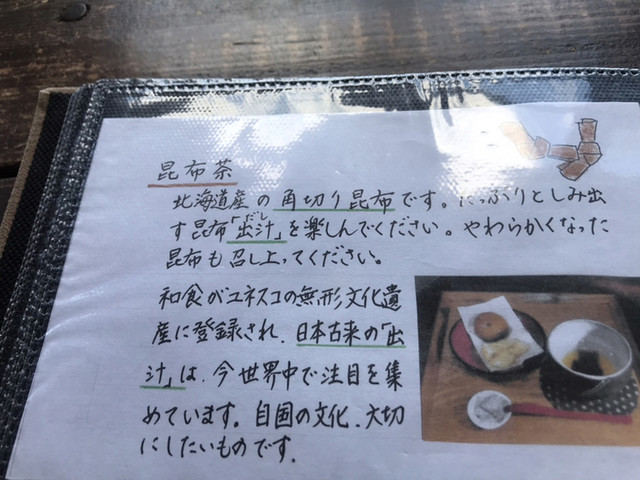 昆布茶
北海道産の角切り昆布です。たっぷりとしみ出
す昆布「出汁」を楽しんでください。やわらかくなった
だし
昆布も召し上ってください。
和食がユネスコの無形文化遺
産に登録され、日本古来の「出
汁」は、今世界中で注目を集
めています。自国の文化、大切
にしたいものです.